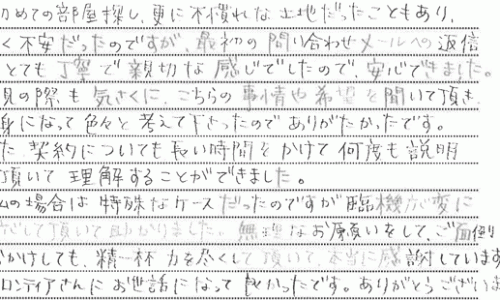 初めての部屋探し、更に不慣れな土地だったこともあり、
く不安だったのですが、最初の問い合わせメールへの返信
とても丁寧で親切な感じでしたので、安心できました。
見の際も気さくに、こちらの事情や希望を聞いて頂き、
身になって色々と考えて下さったのでありがたかったです。
た契約についても長い時間をかけて何度も説明
頂いて理解することができました。
の場合は特殊なケースだったのですが臨機応変に
応して頂いて助かりました。無理なお願いをして、ご面倒
おかけしても、精一杯力を尽くして頂いて、本当に感謝しています
ロンティアさんにお世話になって良かったです。ありがとうございま